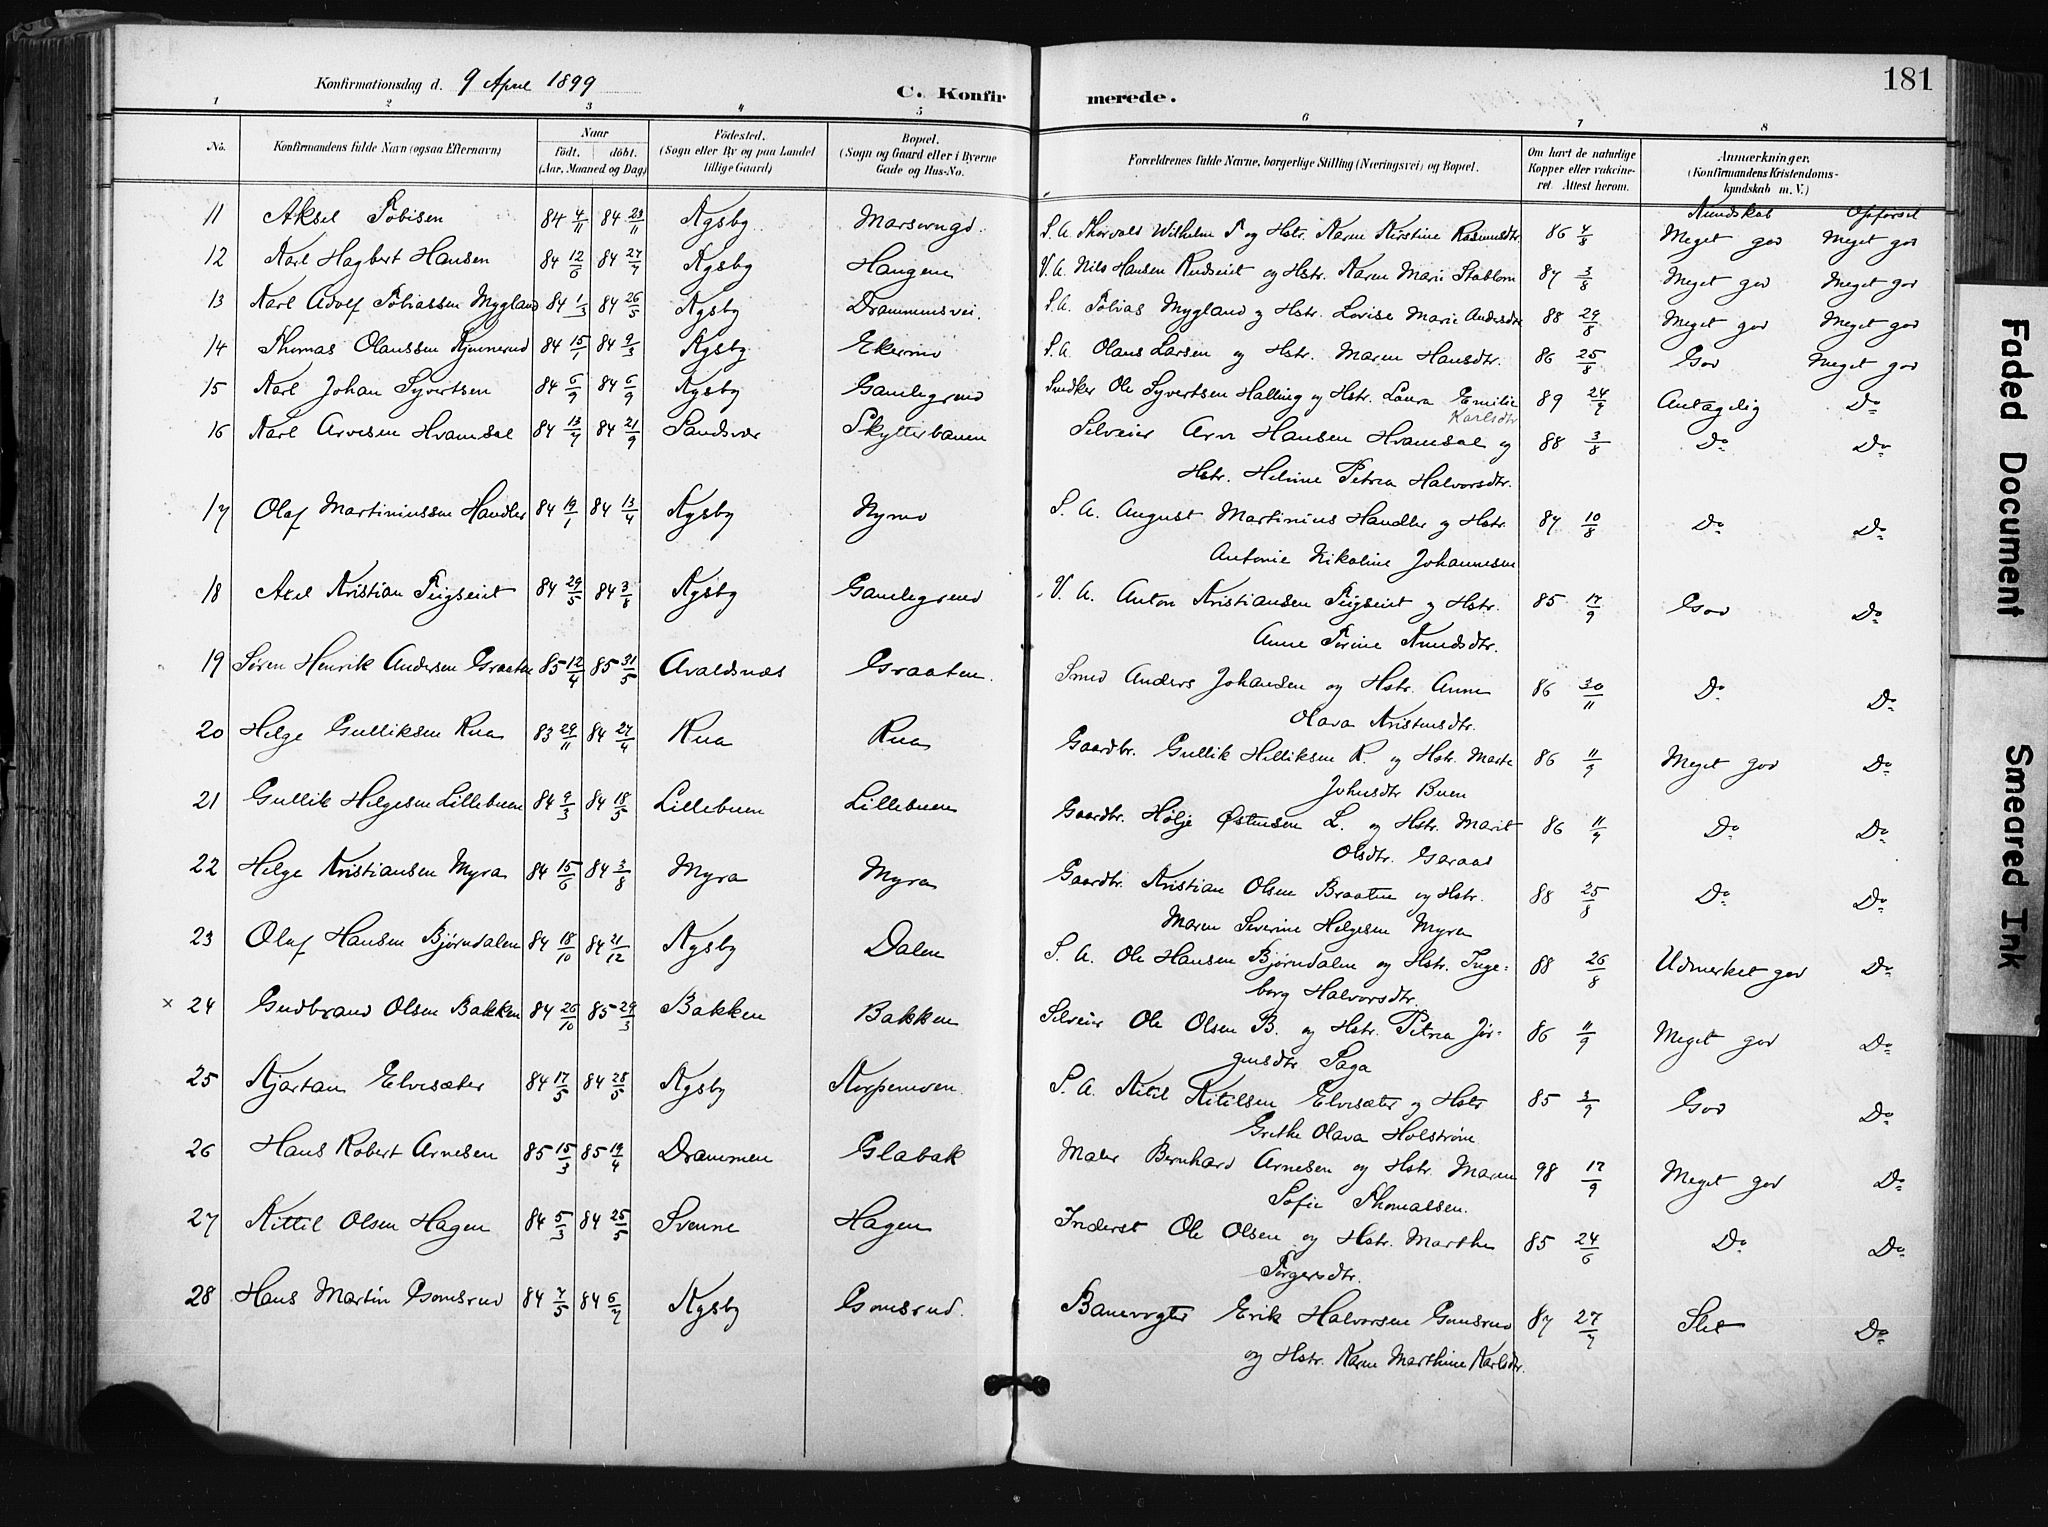 Konfirmationsdag d. 9 April 1899
C. Konfirmerede.
181
1 2 3 4 5 6 7 8
No. Konfirmandens fulde Navn (ogsaa Efternavn) Naar födt. döbt. (Aar, Maaned og Dag) Födested. (Sogn eller By og paa Landet tillige Gaard) Bopæl. (Sogn og Gaard eller i Byerne Gade og Hus-No. Forældrenes fulde Navne, borgerlige Stilling (Næringsvei) og Bopæl. Om havt de naturlige Kopper eller vakcineret. Attest herom. Anmærkninger. (Konfirmandens Kristendomskundskab m. V.)
Kundskab Opförsel
11 Aksel Tobisen 84 4/11 84 23/11 Kgsby S. A. Thorvald Wilhelm T. og Hstr. Karen Kirstine Rasmusdtr. 86 4/8 Meget god Meget god
12 Karl Hagbert Hansen 84 12/6 84 27/7 Kgsby Haugen V. A. Nils Hansen og Hstr. Karen Marie 87 3/8 Meget god Meget god
13 Karl Adolf Tobiassen Mygland 84 1/3 84 26/5 Kgsby Drammensvei. S. A. Tobias Mygland og Hstr. Lovise Marie Andersdtr 88 29/8 Meget god Meget god
14 Thomas Olaussen Kjennerud 84 15/1 84 9/3 Kgsby Ekermo S. A. Olaus Larsen og Hstr. Maren Hansdtr. 86 25/8 God Meget god
15 Karl Johan Syvertsen 84 6/9 84 6/9 Kgsby Gamlegrend Snedker Ole Syvertsen Halling og Hstr. Laura Emilie Karlsdtr 89 24/7 Antagelig Do
16 Karl Arvesen Hvamsal 84 13/7 84 21/9 Sandsvær Skytterbanen Selveier Arve Hansen Hvamsal og 88 3/8 Do Do
Hstr. Helene Petrea Halvorsdtr.
17 Olaf Martiniussen Handler 84 19/1 84 13/4 Kgsby Nymo S. A. August Martinius Handler og Hstr. 87 10/8 Do Do
Antonie Nikoline Johannesen
18 Axel Kristian Teigseiet 84 29/5 84 3/8 Kgsby Gamlegrend V. A. Anton Kristiansen Teigseiet og Hstr. 85 17/9 God Do
Anne Torine Knudsdtr.
19 Sören Henrik Andersen Graaten 85 12/4 85 31/5 Avaldsnæs Graaten. Smed Anders Johansen og Hstr. Anne 86 30/11 Do Do
Olava Kristensdtr.
20 Helge Gulliksen Rua 83 29/11 84 27/4 Rua Rua Gaardbr. Gullik Helliksen R. og Hstr. Marte 86 11/9 Meget god Do
Johnsdtr Buen
21 Gullik Helgesen Lillebuen 84 9/3 84 18/5 Lillebuen Lillebuen Gaardbr. Hølje Østensen L. og Hstr. Marit 86 11/9 Do Do
Olsdtr. Garaas
22 Helge Kristiansen Myra 84 15/6 84 3/8 Myra Myra Gaardbr. Kristian Olsen Braaten og Hstr. 88 25/8 Do Do
Maren Severine Helgesen Myra
23 Olaf Hansen Bjørndalen 84 18/10 84 21/12 Kgsby Dalen S. A. Ole Hansen Bjørndalen og Hstr. Inge- 88 26/8 Udmerket god Do
borg Halvorsdtr.
× 24 Gudbrand Olsen Bakken 84 26/10 85 29/3 Bakken Bakken Selveier Ole Olsen B. og Hstr. Petrea Jör- 86 11/9 Meget god Do
gensdtr Saga
25 Kjartan Elvesæter 84 17/5 84 28/5 Kgsby Korpemoen. S. A. Kitil Kitelsen Elvesæter og Hstr 85 3/9 God Do
Grethe Olava Holstrøm
26 Hans Robert Arnesen 85 15/3 85 19/4 Drammen Glabak Maler Bernhard Arnesen og Hstr. Maren 98 17/9 Meget god Do
Sofie Thomassen.
27 Kittil Olsen Hagen 84 5/3 84 25/5 Svenne Hagen Inderst Ole Olsen og Hstr. Marthe 85 24/6 Do Do
Torgersdtr.
28 Hans Martin Gomsrud 84 7/5 84 6/7 Kgsby Gomsrud. Banevogter Erik Halvorsen Gomsrud 87 27/7 Slet Do
og Hstr. Karen Marthine Karlsdtr.
Faded Document
Smeared Ink